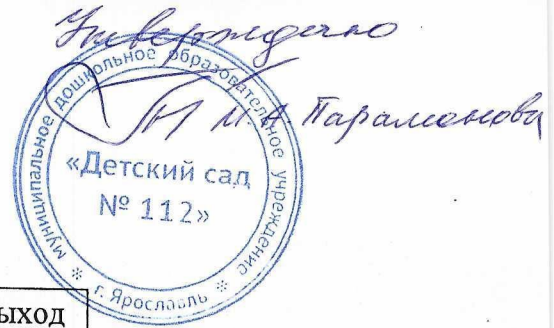 Утверждаю
М.А. Парамонова
Муниципальное дошкольное образовательное учреждение
«Детский сад
№ 112»
г. Ярославль
ыход